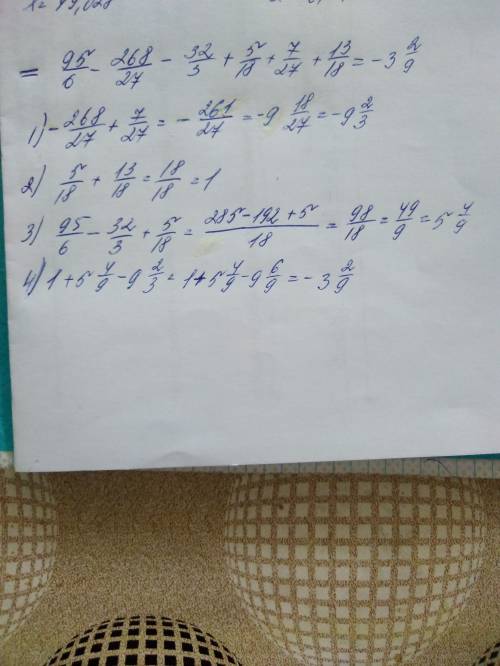 = 95/6 - 268/27 - 32/3 + 5/18 + 7/27 + 13/18 = -3 2/9
1) -268/27 + 7/27 = -261/27 = -9 18/27 = -9 2/3
2) 5/18 + 13/18 = 18/18 = 1
3) 95/6 - 32/3 + 5/18 = (285-192+5)/18 = 98/18 = 49/9 = 5 4/9
4) 1+5 4/9 - 9 2/3 = 1+5 4/9 - 9 6/9 = -3 2/9